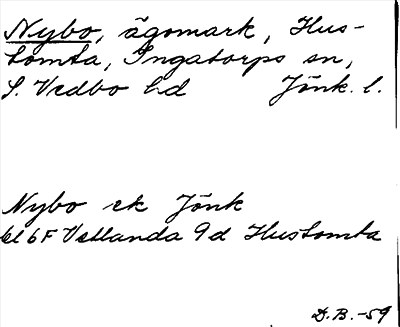 Nybo, ägomark, Hus-
tomta, Ingatorps sn,
S. Vedbo hd Jönk. l.
Nybo ek Jönk
bl 6F Vetlanda 9d Hustomta
D.B.-59